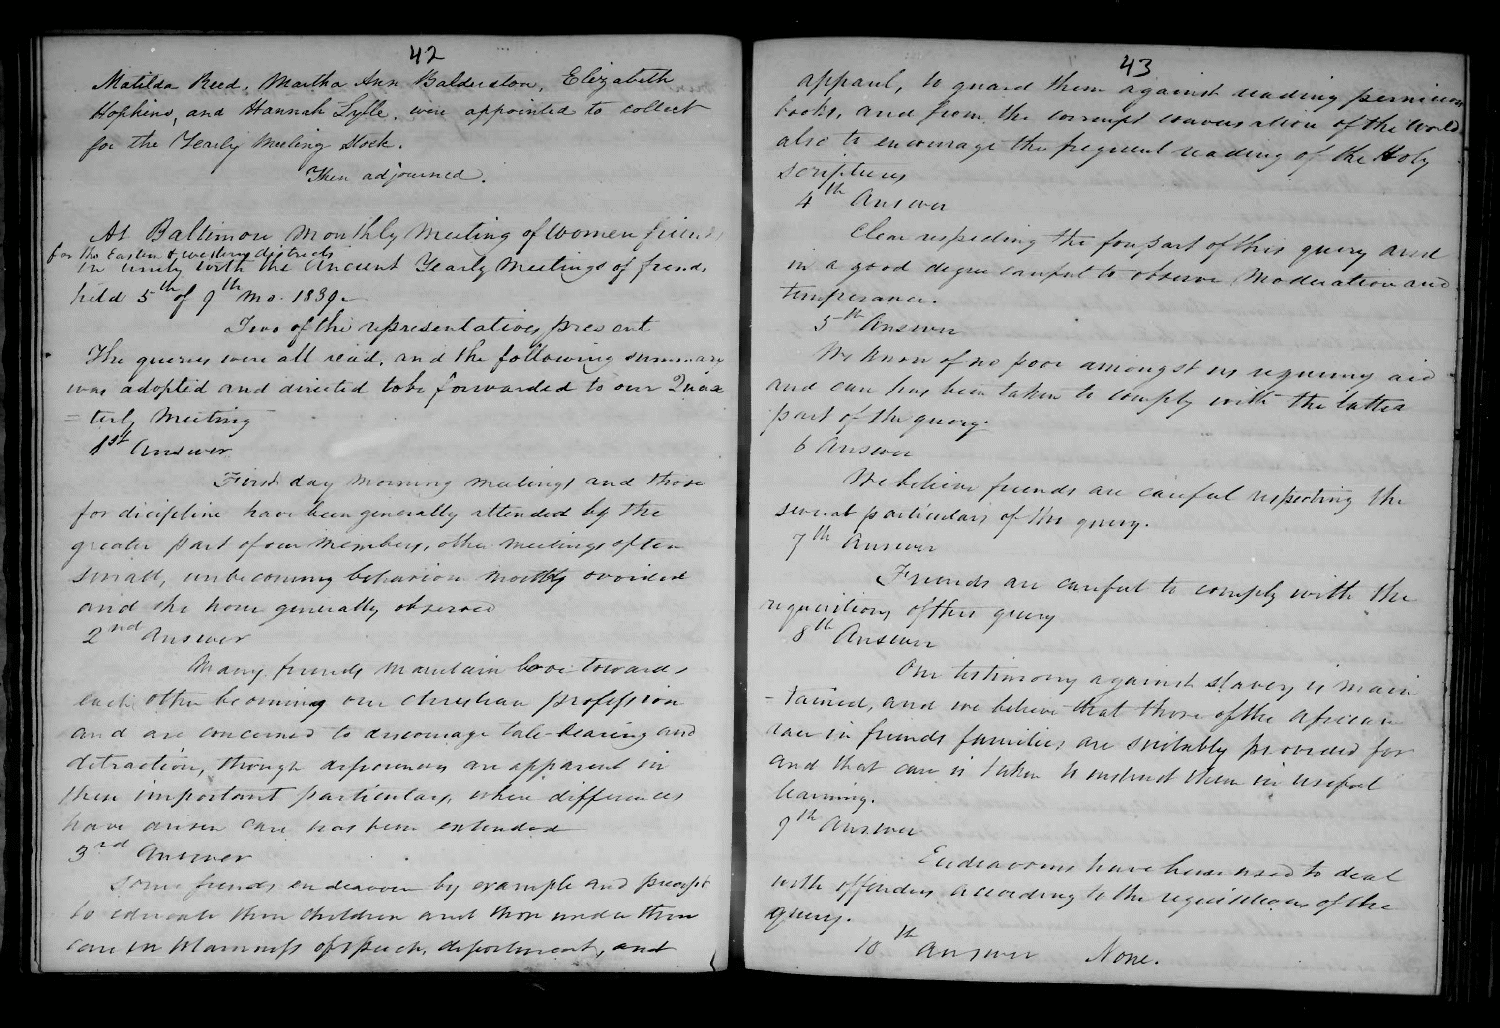 42
Matilda Reed, Martha Ann Balderston, Elizabeth
Hopkins, and Hannah Lytle, were appointed to collect
for the Yearly Meeting Stock.
Then adjourned.
At Baltimore Monthly Meeting of Women friends
for the Eastern & western districts
in unity with the Ancient Yearly Meetings of friends
held 5th of 9th mo. 1839
Two of the representatives present
The queries were all read, and the following summary
was adopted and directed to be forwarded to our Quar
=terly Meeting
1st Answer
First day morning meetings and those
for dicipline have been generally attended by the
greater part of our members, other meetings often
small, unbecoming behavior mostly avoided
and the hour generally observed
2nd Answer
Many friends maintain love towards
each other becoming our christian profession
and are concerned to discourage tale-bearing and
detraction, though deficiences are apparent in
these important particulars, where differences
have arisen care has been extended
3rd Answer
Some friends endeavour by example and precept
to educate their children and those under their
care in plainness of speech, deportment, and
43
apparel, to guard them against reading pernicious
books, and from the corrupt conversation of the world
also to encourage the frequent reading of the Holy
scriptures
4th Answer
Clear respecting the fore part of this query and
in a good degree careful to observe Moderation and
temperance.
5th Answer
We know of no poor amongst us requiring aid
and care has been taken to comply with the latter
part of the query.
6 Answer
We believe friends are careful respecting the
several particulars of this query.
7th Answer
Friends are careful to comply with the
requisitions of this query
8th Answer
Our testimony against slavery is main
-tained, and we believe that those of the African
race in friends families are suitably provided for
and that care is taken to instruct them in useful
learning.
9th Answer
Endeavours have been used to deal
with offenders according to the requisitions of the
query.
10th Answer None.